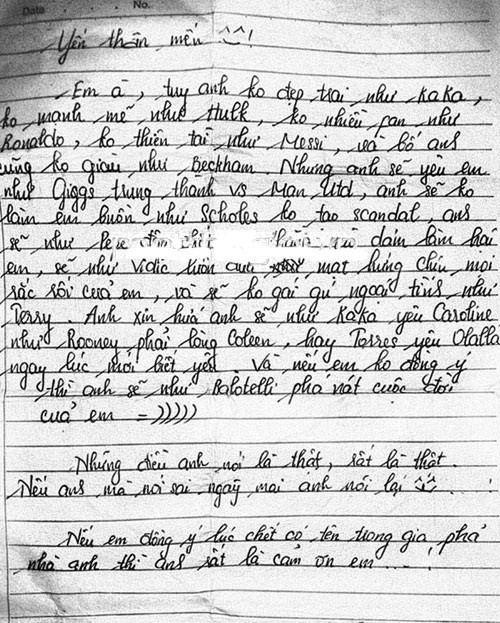 Date No.
Yến thân mến ^^!
Em à, tuy anh ko đẹp trai như KaKa,
ko mạnh mẽ như Hulk, ko nhiều fan như
Ronaldo, ko thiên tài như Messi, và bố anh
cũng ko giàu như Beckham. Nhưng anh sẽ yêu em
như Giggs trung thành vs Man Utd, anh sẽ ko
làm em buồn như Scholes ko tạo scandal, anh
sẽ như Pepe đốn dám làm hại
em, sẽ như Vidic luôn mạt hứng chịu mọi
sắc rối của em, và sẽ ko gái gú ngoại tình như
Terry. Anh xin hứa anh sẽ như KaKa yêu Caroline
như Rooney phải lòng Coleen, hay Torres yêu Olalla
ngay lúc mới biết yêu. Và nếu em ko đồng ý
thì anh sẽ như Balotelli phá nát cuộc đời
của em =)))))
Những điều anh nói là thật, rất là thật.
Nếu anh mà nói sai ngày mai anh nói lại ^^
Nếu em đồng ý lúc chết có tên trong gia phả
nhà anh thì anh rất là cảm ơn em ...!